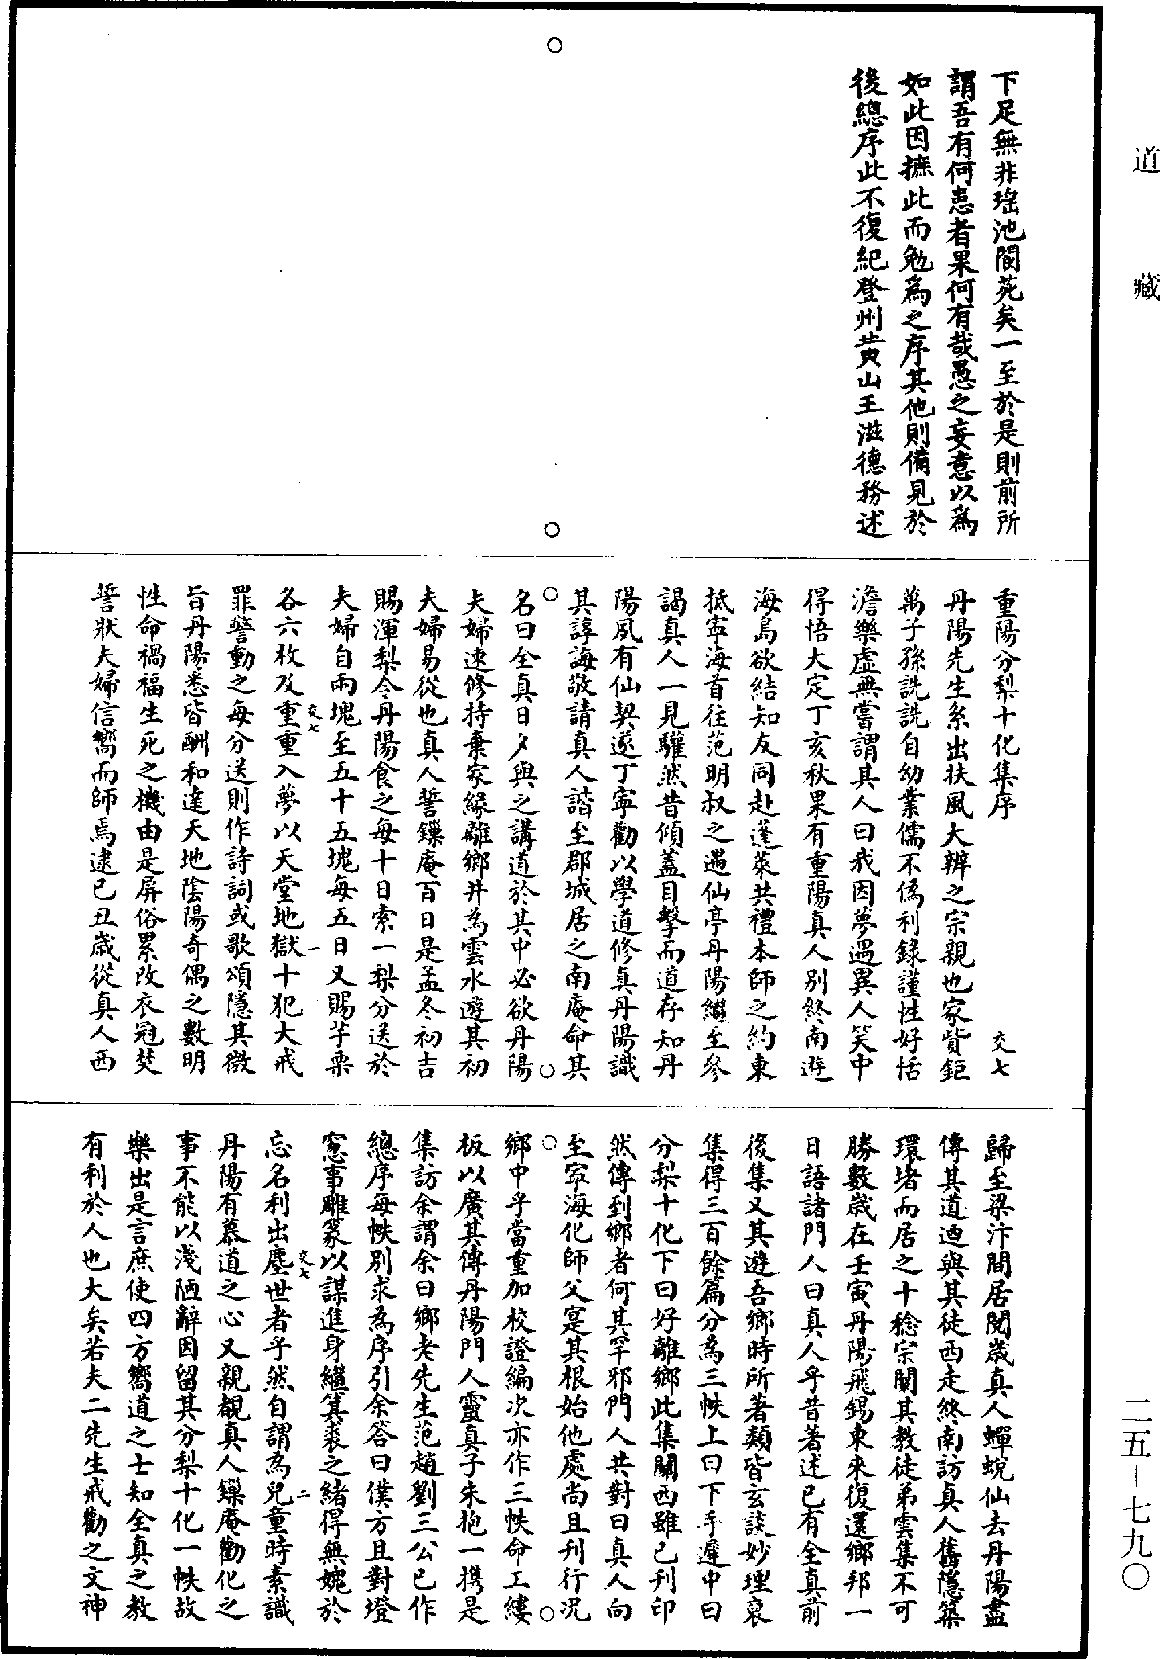 道藏
下足無非瑤池閬苑矣一至於是則前所
謂吾有何患者果何有哉愚之妄意以為
如此因摭此而勉為之序其他則備見於
後總序此不復紀登州黄山王滋德務述
重陽分梨十化集序 交七
丹陽先生系出扶風大辨之宗親也家貲鉅
萬子孫詵詵自幼業儒不偽利錄謹性好恬
澹樂虛無嘗謂其人曰我因夢遇異人笑中
得悟大定丁亥秋果有重陽真人別終南遊
海島欲結知友同赴蓬萊共禮本師之約東
抵寧海首往范明叔之遇仙亭丹陽繼至參
謁真人一見驩然昔傾蓋目擊而道存知丹
陽夙有仙契遂丁寧勸以學道修真丹陽識
其諄誨敬請真人詣至郡城居之南庵命其
名曰全真日夕與之講道於其中必欲丹陽
夫婦速修持棄家緣離鄉井為雲水遊其初
夫婦易從也真人誓鏁庵百日是孟冬初吉
賜渾梨令丹陽食之每十日索一梨分送於
夫婦自兩塊至五十五塊每五日又賜芋栗
交七 一
各六枚及重重入夢以天堂地獄十犯大戒
罪警動之每分送則作詩詞或歌頌隱其微
旨丹陽悉皆酬和達天地陰陽奇偶之數明
性命禍福生死之機由是屏俗累改衣冠焚
誓狀夫婦信嚮而師焉逮已丑歲從真人西
歸至梁汴間居閱歲真人蟬蛻仙去丹陽盡
傳其道廼與其徒西走終南訪真人舊隱築
環堵而居之十稔宗闡其教徒弟雲集不可
勝數歲在壬寅丹陽飛錫東來復還鄉邦一
日語諸門人曰真人乎昔著述已有全真前
後集又其遊吾鄉時所著類皆玄談妙理裒
集得三百餘篇分為三帙上曰下手遲中曰
分梨十化下曰好離鄉此集關西雖已刊印
然傳到鄉者何其罕邪門人共對曰真人向
至寧海化師父寔其根始他處尚且刊行況
鄉中乎當重加校證編次亦作三帙命工縷
板以廣其傳丹陽門人靈真子朱抱一携是
集訪余謂余曰鄉老先生范趙劉三公已作
總序每帙別求為序引余答曰僕方且對燈
窻事雕篆以謀進身繼箕裘之緒得無媿於
交七 二
忘名利出塵世者乎然自謂為兒童時素識
丹陽有慕道之心又親覩真人鏁庵勸化之
事不能以淺陋辭因留其分梨十化一帙故
樂出是言庶使四方嚮道之士知全真之教
有利於人也大矣若夫二先生戒勸之文神
二五－七九〇